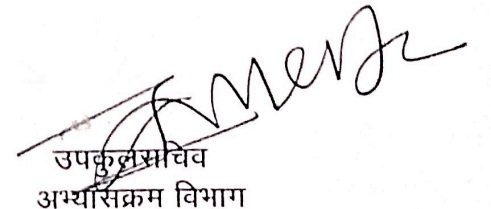 उपकुलसचिव
अभ्यासक्रम विभाग